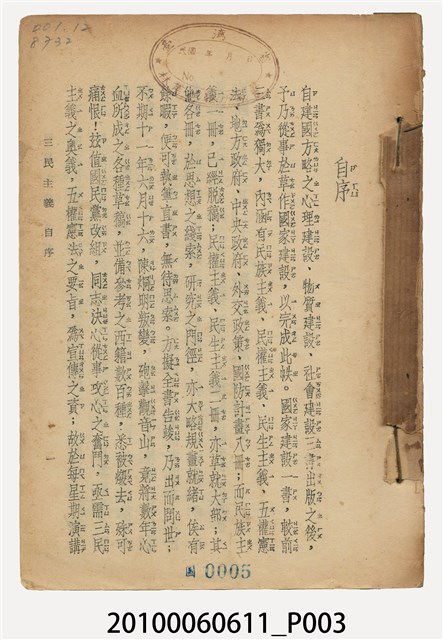 001.12
8732
自序
自建國方略之心理建設、物質建設、社會建設三書出版之後，
予乃從事於草作國家建設，以完成此帙。國家建設一書，較前
三書爲獨大，內涵有民族主義、民權主義、民生主義、五權憲
法、地方政府、中央政府、外交政策、國防計畫八冊；而民族主
義一冊，已經脫稿；民權主義、民生主義二冊，亦草就大部；其
他各冊，於思想之線索，研究之門徑，亦大略規畫就緒，俟有
餘暇，便可執筆直書，無待思索。方擬全書告竣，乃出而問世；
不期十一年六月十六，陳炯明叛變，砲擊觀音山，竟將數年心
血所成之各種草稿，並備參考之西籍數百種，悉被燬去，殊可
痛恨！茲值國民黨改組，同志決心從事攻心之奮鬥，亟需三民
主義之奧義，五權憲法之要旨，爲宣傳之資；故於每星期演講
三民主義 自序
一
No.
0005
20100060611_P003